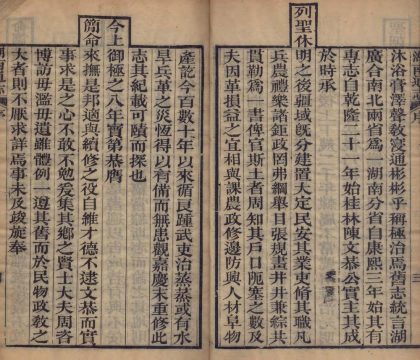 沐浴膏澤聲教寖通彬彬乎稱極治焉舊志統言湖
廣合南北兩省爲一湖南分省自康熙三年始其有
專志自乾隆二十一年始桂林陳文恭公實主其成
於時承
列聖休
明之後疆域旣分建置大定民安其業吏脩其職凡
兵農禮樂諸鉅政罔弗綱舉目張規畫井井兼綜其
貫勒爲一書俾官斯土者周知其戶口阨塞之數及
夫因革損益之宜相與課農政修邊防興人材阜物
產訖今百數十年以來循良踵武吏治蒸蒸或有水
旱兵革之災恆得以有備而無患觀嘉慶末重修此
志其紀載可賾而探也
今上御極之八年寶第恭膺
簡命來撫是邦適與續修之役自維才德不逮文恭而實
事求是之心不敢不勉爰集其鄉之賢士大夫周咨
博訪毋濫毋遺雖體例一遵其舊而於民物政教之
大者則不厭求詳焉事未及竣旋奉